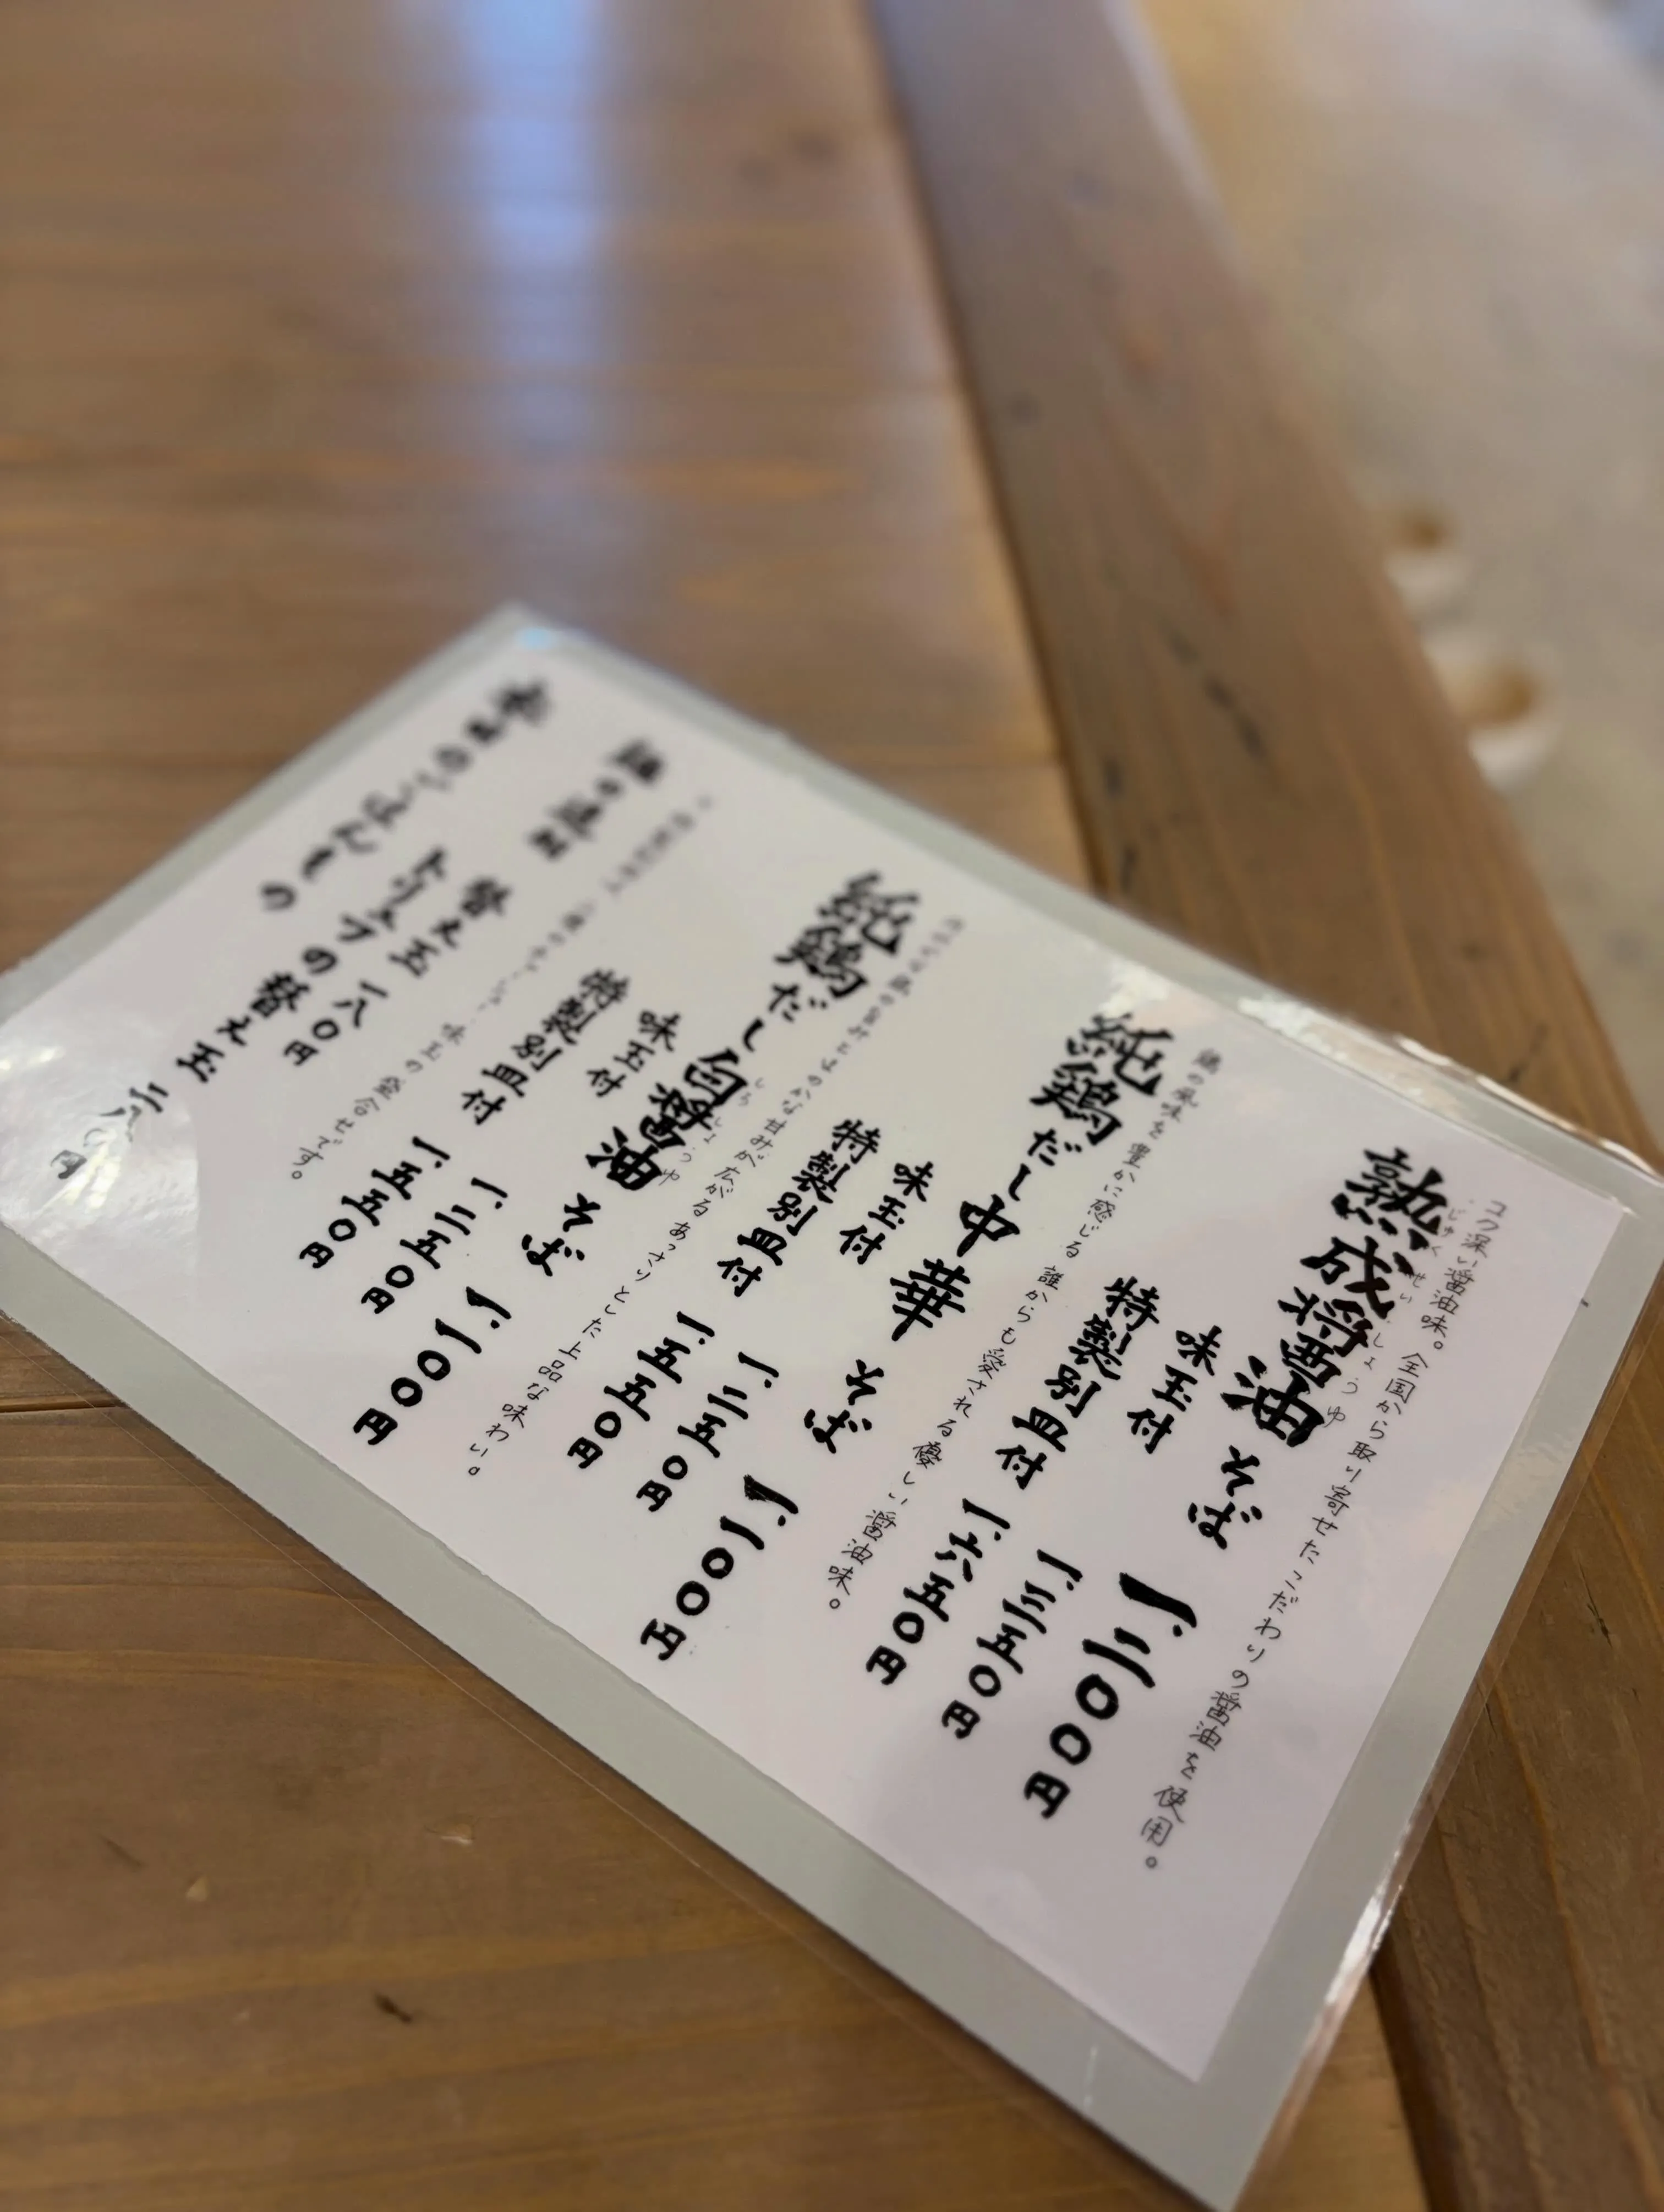 コク深い醤油味。全国から取り寄せたこだわりの醤油を使用。
じゅくせいしょうゆ
熟成醤油そば 一、二〇〇円
味玉付 一、三五〇円
特製別皿付 一、六五〇円
鶏の風味を豊かに感じる誰からも愛される優しい醤油味。
純鶏だし中華そば 一、一〇〇円
味玉付 一、二五〇円
特製別皿付 一、五五〇円
鶏の旨みとほのかな甘みが広がるあっさりとした上品な味わい。
しろしょうゆ
純鶏だし白醤油そば 一、一〇〇円
味玉付 一、二五〇円
特製別皿付 一、五五〇円
味玉の盛合せです。
麺の追加
替え玉 一八〇円
トリュフの替え玉 二八〇円
本日のごはんもの